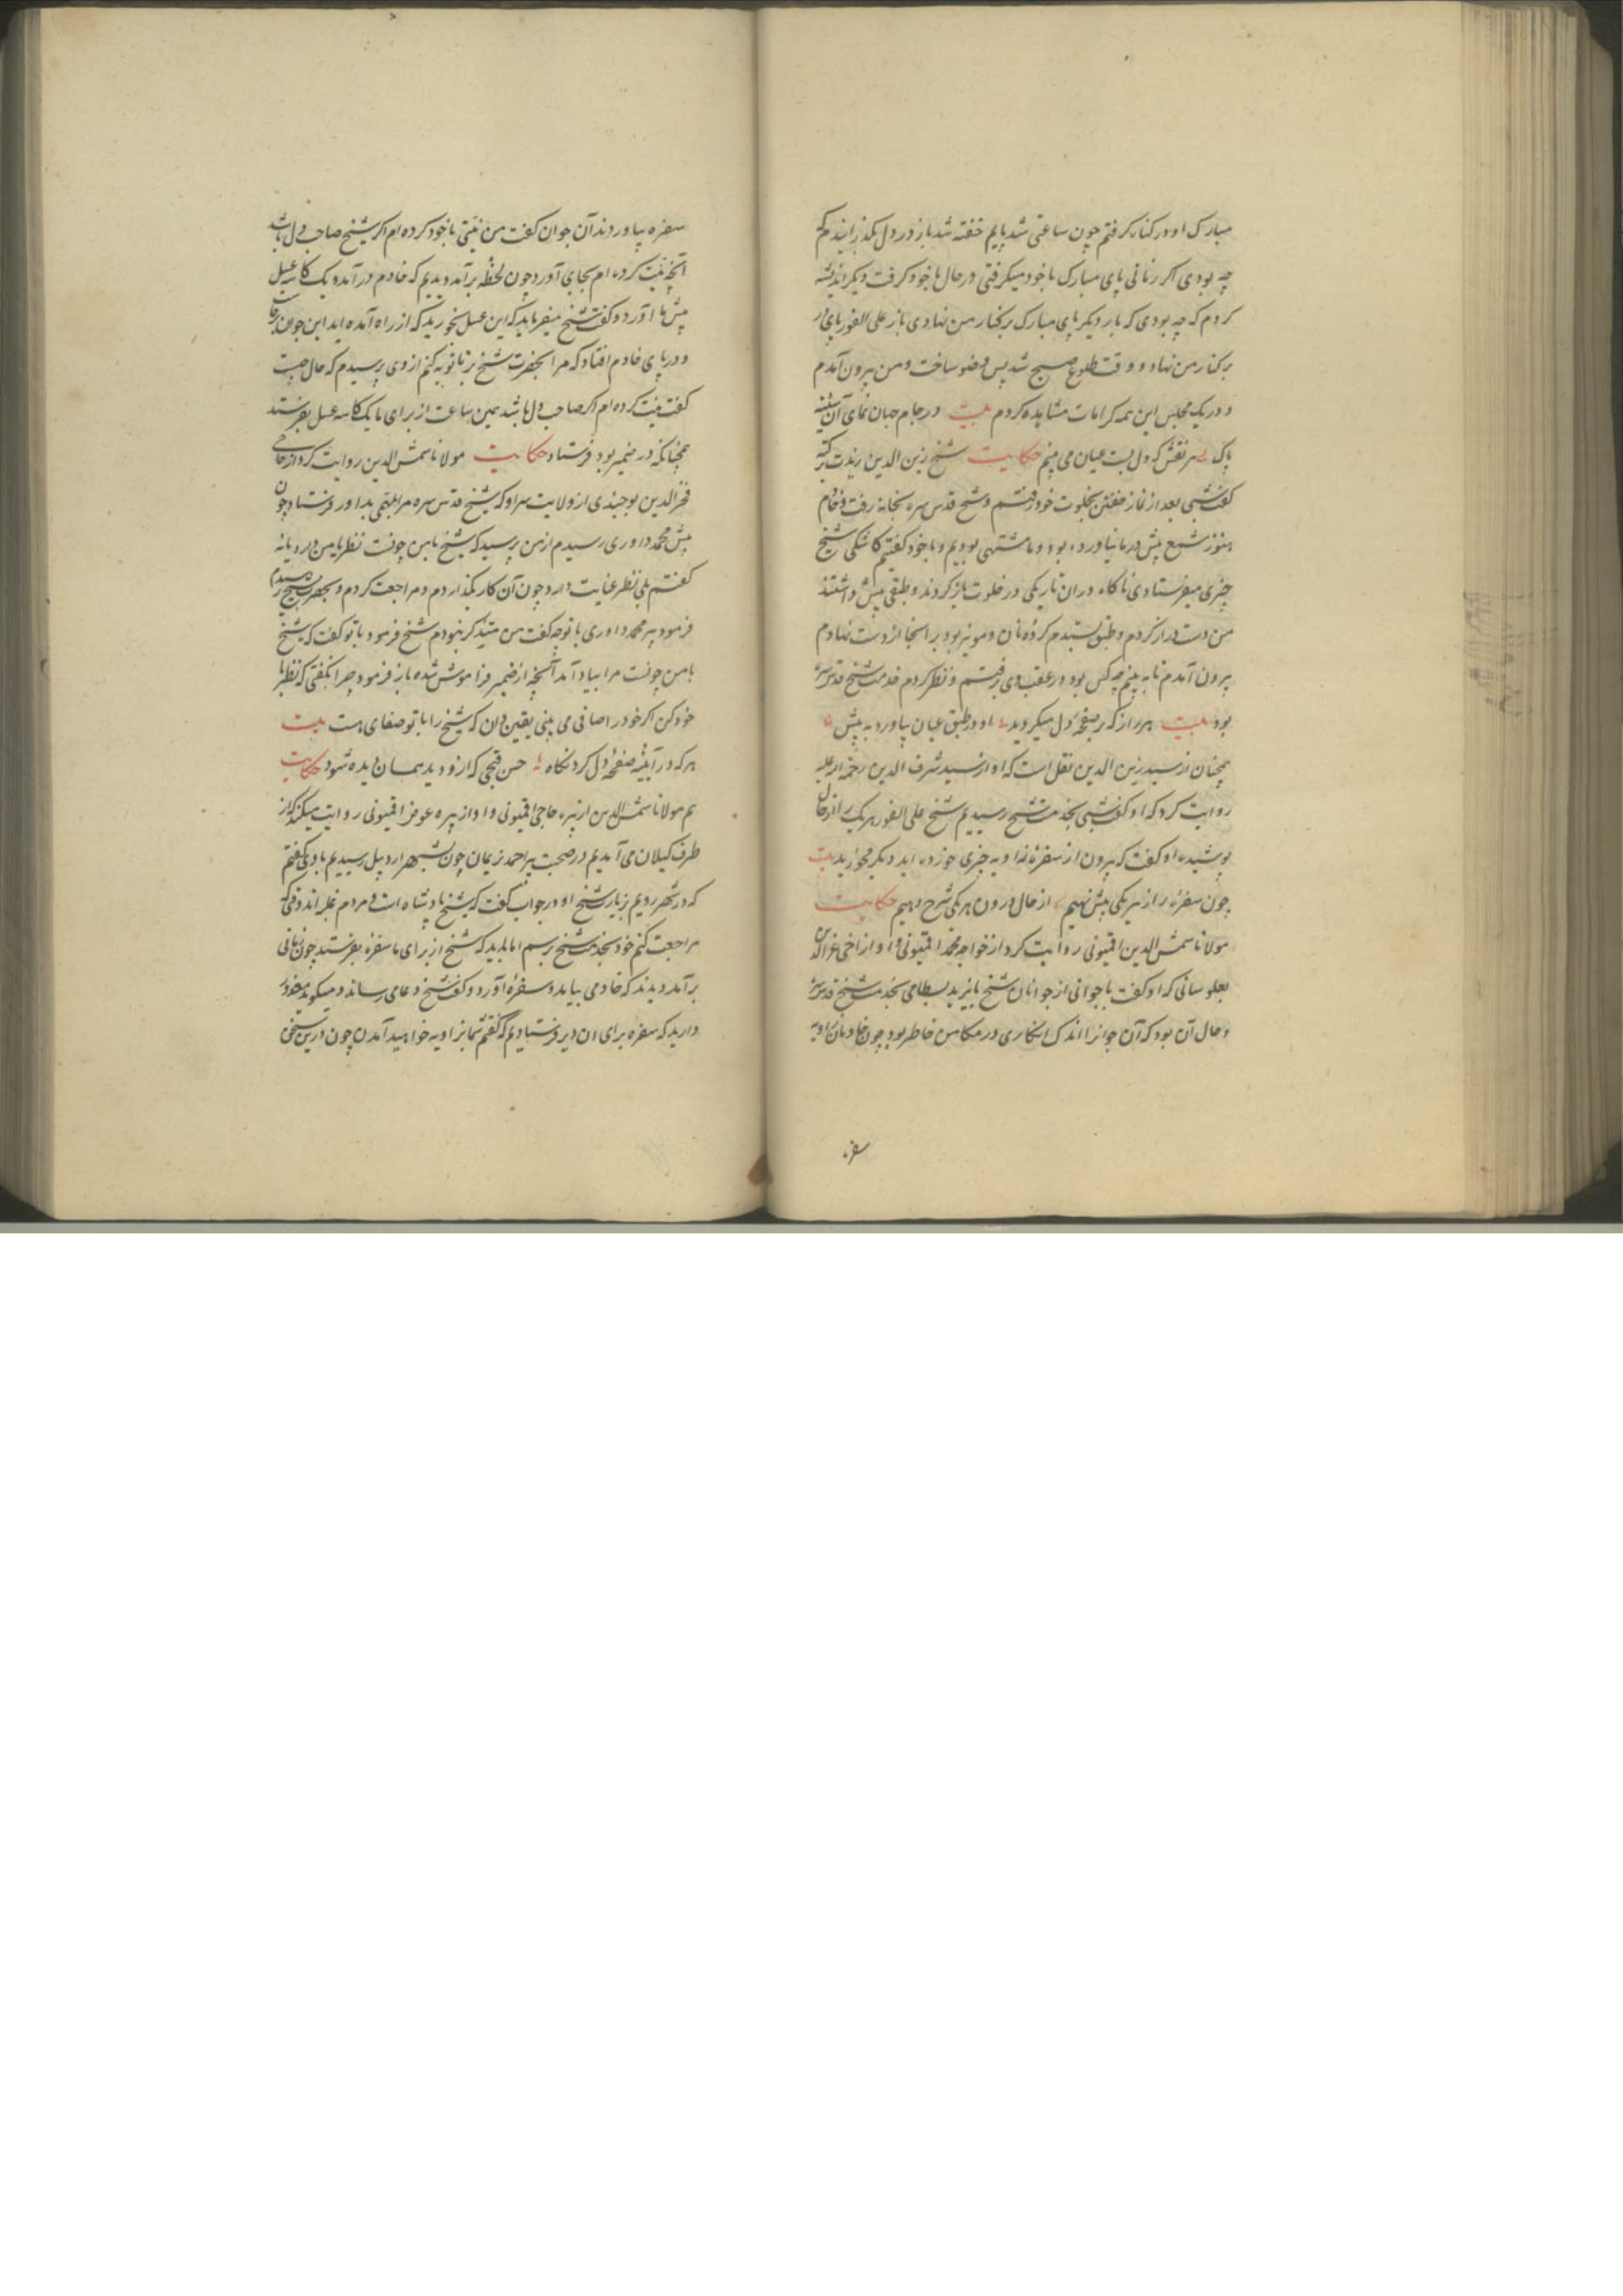 مبارک او در کنار گرفتم چون ساعتی شد پایم خفته شد باز در دل بگذرانیدم که
چه بودی اگر زمانی پای مبارک با خود میگرفتی در حال با خود گرفت دیگر اندیشه
کردم که چه بودی که بار دیگر پای مبارک بر کنار من نهادی باز علی الفور پای را
بر کنار من نهاد و وقت طلوع صبح شد پس وضو ساخت و من بیرون آمدم
و در یک مجلس این همه کرامات مشاهده کردم بیت در جام جهان نمای آن سینه
پاک هر نقش که دل بست عیان می بینم حکایت شیخ زین الدین رندت
گفت شبی بعد از نماز خفتن بخلوت خود رفتم و شیخ قدس سره بخانه رفت و خادم
هنوز شمع پیش در ما نیاورده بود و ما مشتهی بودیم و با خود گفتیم کاشکی شیخ
چیزی میفرستادی ناکاه در ان تاریکی در خلوت باز کردند و طبقی پیش داشتند
من دست دراز کردم و طبق بستدم گرده نان و مویز بود بر آنجا از دست نهادم
بیرون آمدم تا به بینم چه کس بود در عقب وی رفتم و نظر کردم خدمت شیخ قدس سره
بود بیت هر راز که بر صفحه دل میگردید او در طبق عیان بیاورد به پیش
همچنان از سید زین الدین نقل است که او از سید شرف الدین رحمة الله علیه
روایت کرد که او گفت شبی بخدمت شیخ رسیدیم شیخ علی الفور هر یک را از حال
پوشیده او گفت که بیرون از سفره زاویه چیزی خورده اید دیگر مخورید بیت
چون سفره راز هر یکی پیش نهیم از حال درون هر یکی شرح دهیم حکایت
مولانا شمس الدین اقمیونی روایت کرد از خواجه محمد اقمیونی و او از اخی عزالدین
بعلوسانی که او گفت با جوانی از جوانان شیخ بایزید بسطامی بخدمت شیخ قدس سره
و حال آن بود که آن جوانرا اندک انکاری در مکامن خاطر بود چون خادمان زاویه
سفره
سفره بیاوردند آن جوان گفت من نیتی با خود کرده ام اگر شیخ صاحب دل باشد
آنچه نیت کرده ام بجای آورد چون لحظه برآمد دیدیم که خادم در آمد و یک کاسه عسل
پیش ما آورد و گفت شیخ میفرماید که این عسل بخورید که از راه آمده اید این جوان برخاست
و در پای خادم افتاد که مرا بحضرت شیخ بر تا توبه کنم از وی پرسیدم که حال چیست
گفت نیت کرده ام اگر صاحب دل باشد همین ساعت از برای ما یک کاسه عسل بفرستد
همچنانکه در ضمیر بود فرستاد حکایت مولانا شمس الدین روایت کرد از حاجی
فخرالدین بوجیندی از ولایت سراو که شیخ قدس سره مرا بمهمی بداور فرستاد چون
پیش محمد داوری رسیدم از من پرسید که شیخ با من چونست نظر با من دارد یا نه
گفتم بلی نظر عنایت دارد چون آن کار بگذاردم و مراجعت کردم و بحضرت شیخ رسیدم
فرمود پیر محمد داوری با تو چه گفت من متذکر نبودم شیخ فرمود با تو گفت که شیخ
با من چونست مرا بیاد آمد آنچه از ضمیر فراموش شده باز فرمود چرا نگفتی که نظر با
خود کن اگر خود را صافی می بینی یقین دان که شیخ را با تو صفای هست بیت
هر که در آینه صفحه دل کرد نگاه حسن و قبحی که ازو دید همان دیده شود حکایت
هم مولانا شمس الدین از پیره حاجی اقمیونی و او از پیره عوض اقمیونی روایت میکند که از
طرف گیلان می آمدیم در صحبت پیر احمد نریمان چون بشهر اردبیل رسیدیم با وی گفتم
که در شهر رویم بزیارت شیخ او در جواب گفت که شیخ پادشاه است و مردم غلبه اند وقتی که
مراجعت کنم خود بخدمت شیخ رسم اما باید که شیخ از برای ما سفره بفرستد چون زمانی
برآمد دیدند که خادمی بیامد و سفره آورد و گفت شیخ دعا می رساند و میگوید معذور
دارید که سفره برای ان دیر فرستادیم که گفتم شما بزاویه خواهید آمدن چون درین سخن